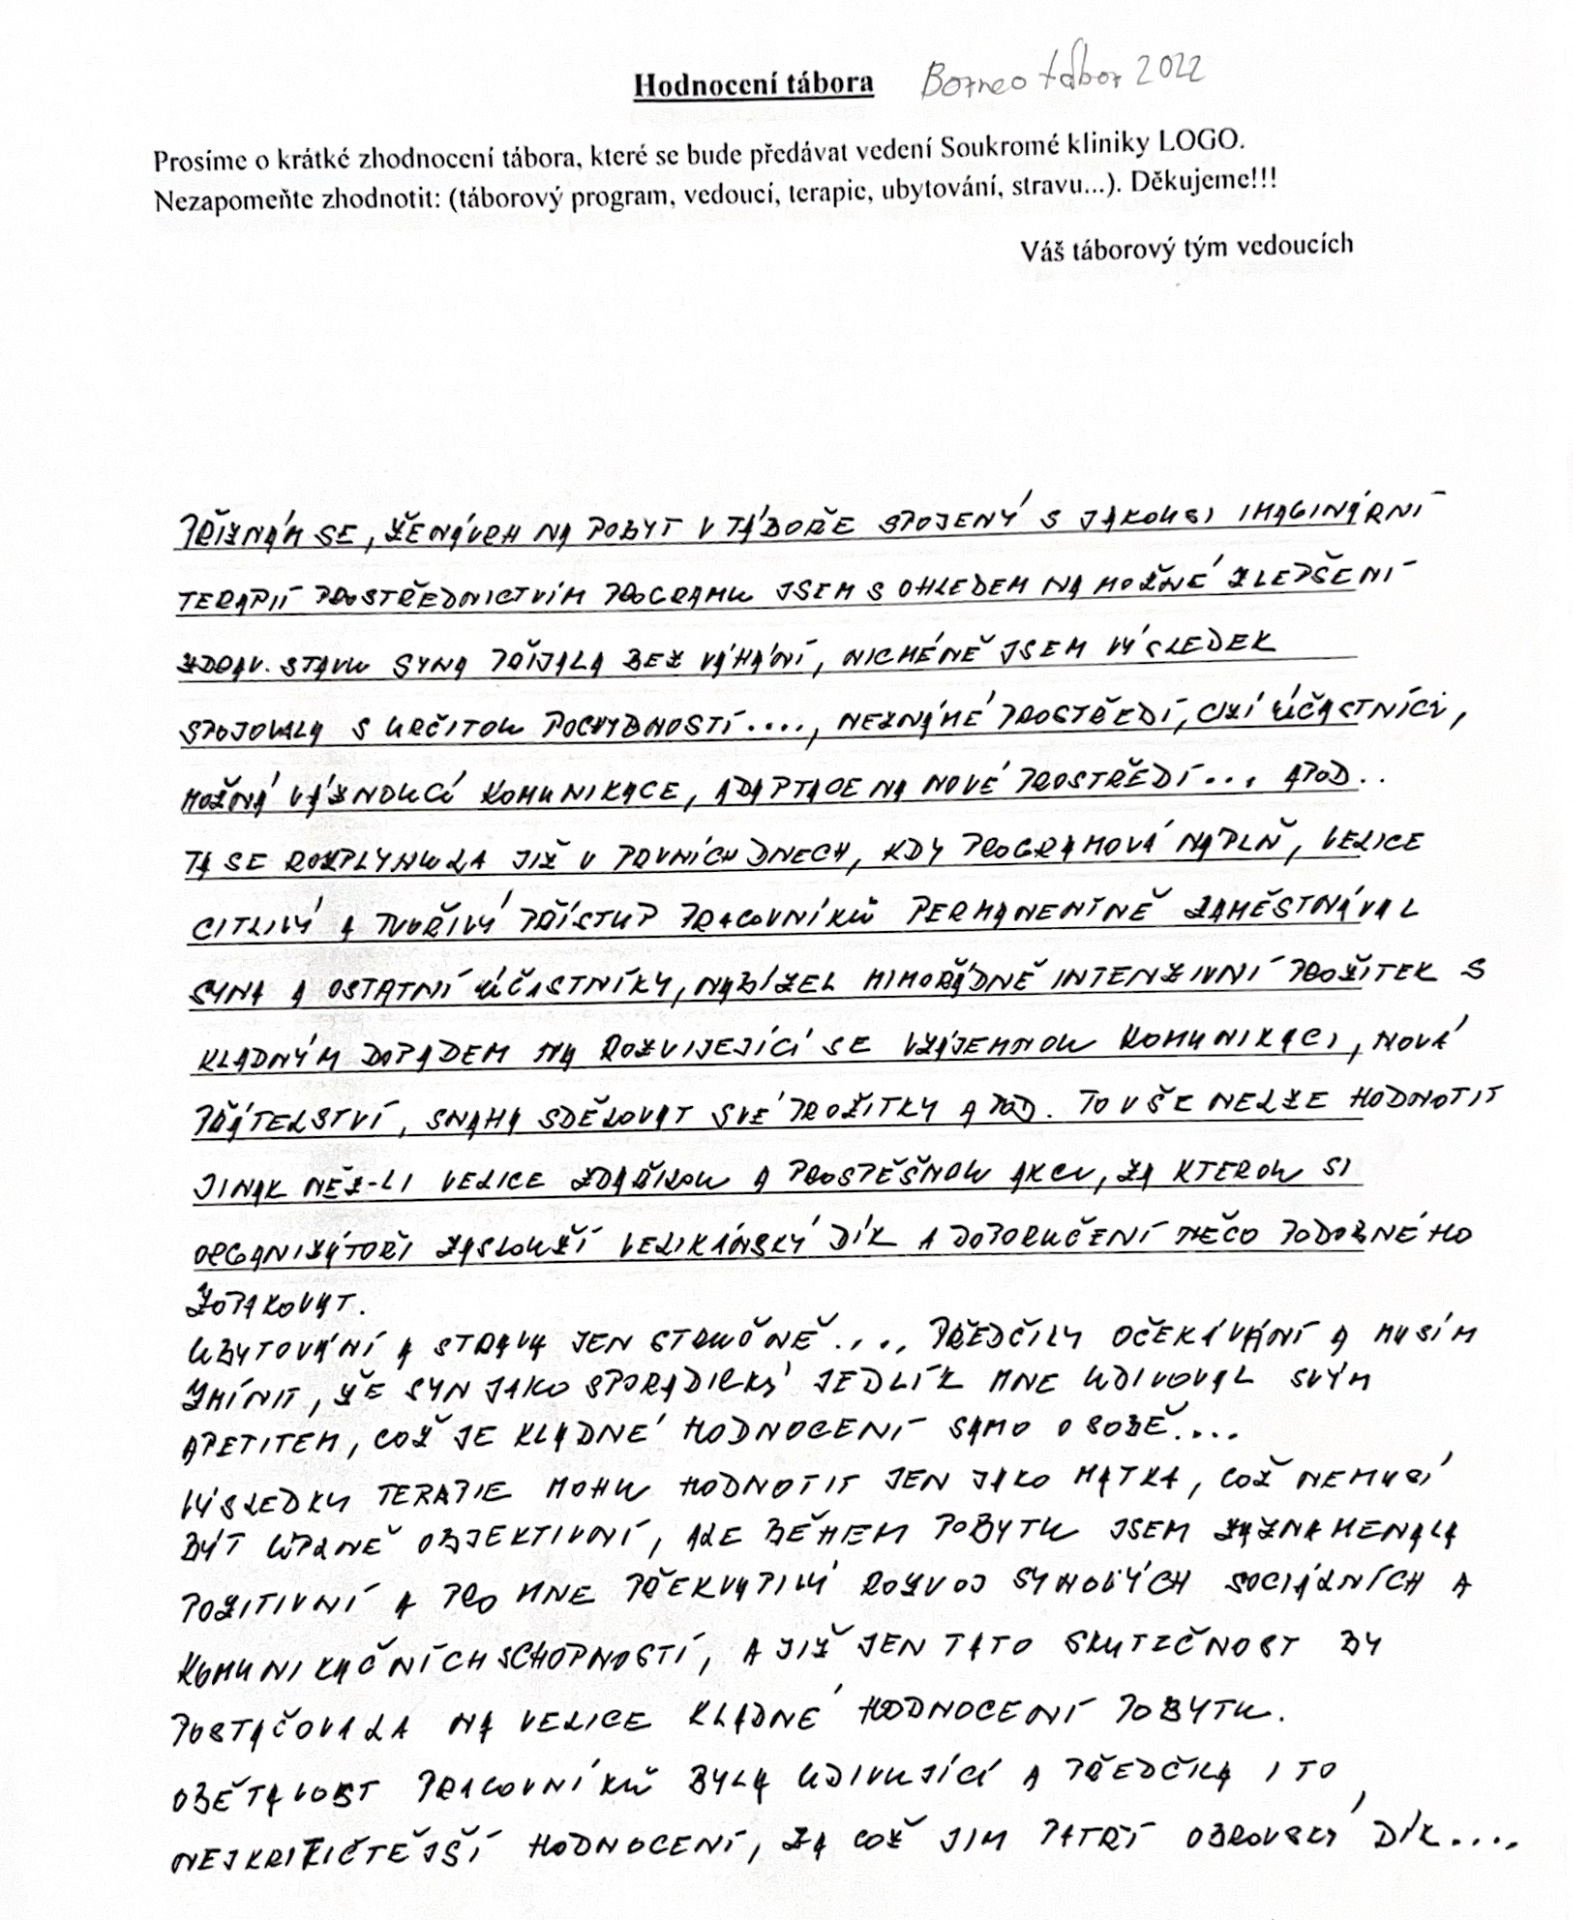 Hodnocení tábora Borneo tábor 2022
Prosíme o krátké zhodnocení tábora, které se bude předávat vedení Soukromé kliniky LOGO.
Nezapomeňte zhodnotit: (táborový program, vedoucí, terapie, ubytování, stravu...). Děkujeme!!!
Váš táborový tým vedoucích
PŘIZNÁM SE, ŽE NÁVRH NA POBYT V TÁBOŘE SPOJENÝ S JAKOUSI IMAGINÁRNÍ
TERAPIÍ PROSTŘEDNICTVÍM PROGRAMU JSEM S OHLEDEM NA MOŽNÉ ZLEPŠENÍ
ZDRAV. STAVU SYNA PŘIJALA BEZ VÁHÁNÍ, NICMÉNĚ JSEM VÝSLEDEK
SPOJOVALA S URČITOU POCHYBNOSTÍ...., NEZNÁMÉ PROSTŘEDÍ, CIZÍ ÚČASTNÍCI,
MOŽNÁ VÁZNOUCÍ KOMUNIKACE, ADAPTACE NA NOVÉ PROSTŘEDÍ... APOD..
TA SE ROZPLYNULA JIŽ V PRVNÍCH DNECH, KDY PROGRAMOVÁ NÁPLŇ, VELICE
CITLIVÝ A TVOŘIVÝ PŘÍSTUP PRACOVNÍKŮ PERMANENTNĚ ZAMĚSTNÁVAL
SYNA A OSTATNÍ ÚČASTNÍKY, NABÍZEL MIMOŘÁDNĚ INTENZIVNÍ PROŽITEK S
KLADNÝM DOPADEM NA ROZVIJEJÍCÍ SE VZÁJEMNOU KOMUNIKACI, NOVÁ
PŘÁTELSTVÍ, SNAHA SDĚLOVAT SVÉ PROŽITKY APOD. TO VŠE NELZE HODNOTIT
JINAK NEŽ-LI VELICE ZDAŘILOU A PROSPĚŠNOU AKCI, ZA KTEROU SI
ORGANIZÁTOŘI ZASLOUŽÍ VELIKÁNSKÝ DÍK A DOPORUČENÍ NĚČO PODOBNÉHO
ZOPAKOVAT.
UBYTOVÁNÍ A STRAVA JEN STRUČNĚ.... PŘEDČILY OČEKÁVÁNÍ A MUSÍM
ZMÍNIT, ŽE SYN JAKO SPORADICKÝ JEDLÍK MNE UDIVOVAL SVÝM
APETITEM, COŽ JE KLADNÉ HODNOCENÍ SAMO O SOBĚ....
VÝSLEDKY TERAPIE MOHU HODNOTIT JEN JAKO MATKA, COŽ NEMUSÍ
BÝT ÚPLNĚ OBJEKTIVNÍ, ALE BĚHEM POBYTU JSEM ZAZNAMENALA
POZITIVNÍ A PRO MNE PŘEKVAPIVÝ ROZVOJ SYNOVÝCH SOCIÁLNÍCH A
KOMUNIKAČNÍCH SCHOPNOSTÍ, A JIŽ JEN TATO SKUTEČNOST BY
POSTAČOVALA NA VELICE KLADNÉ HODNOCENÍ POBYTU.
OBĚTAVOST PRACOVNÍKŮ BYLA UDIVUJÍCÍ A PŘEDČILA I TO
NEJKRITIČTĚJŠÍ HODNOCENÍ, ZA COŽ JIM PATŘÍ OBROVSKÝ DÍK....